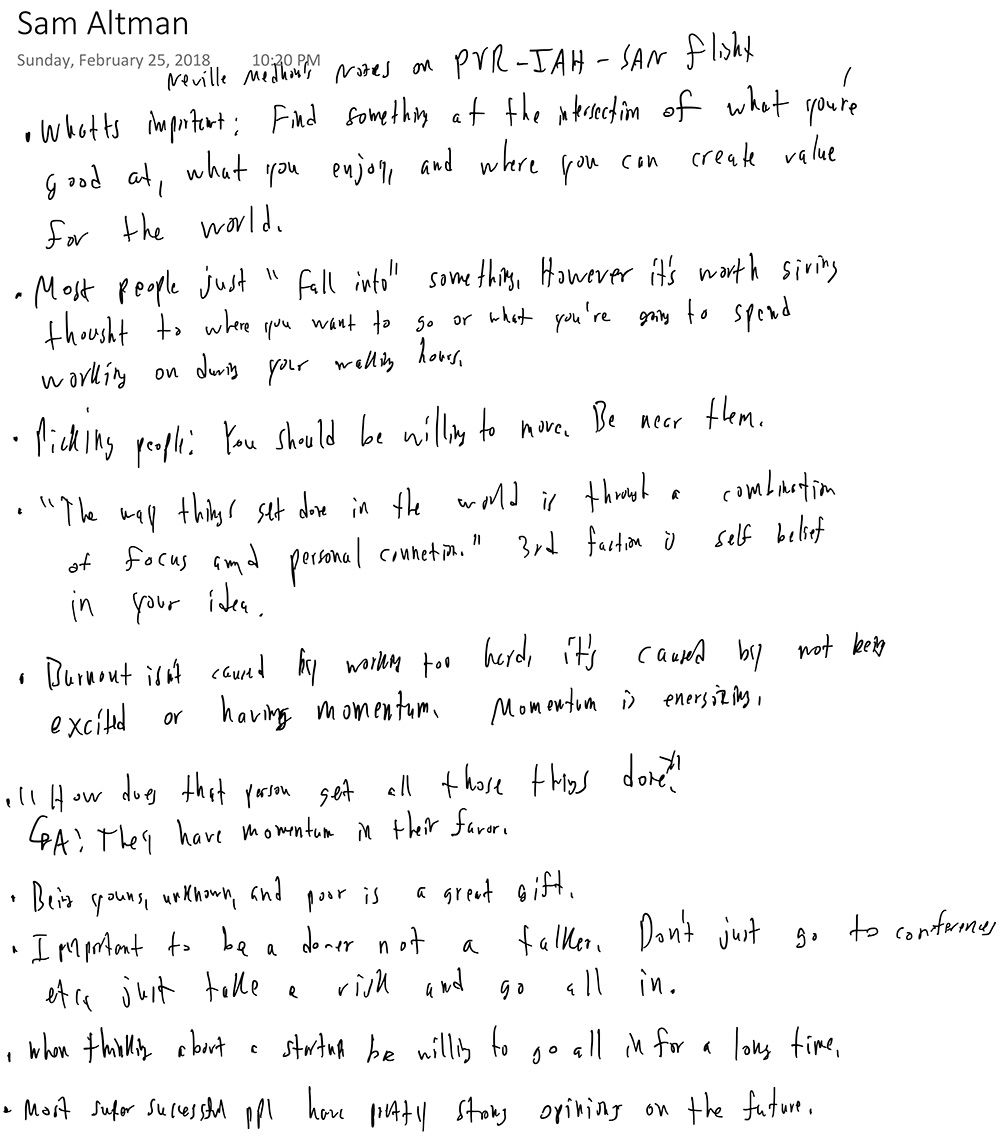 Sam Altman
Sunday, February 25, 2018 10:20 PM
Neville Medhora's Notes on PVR-IAH-SAN flight
• Whatts important: Find something at the intersection of what you're
good at, what you enjoy, and where you can create value
for the world.
• Most people just "fall into" something. However it's worth giving
thought to where you want to go or what you're going to spend
working on during your walking hours.
• Picking people: You should be willing to move. Be near them.
• "The way things get done in the world is through a combination
of focus and personal connection." 3rd faction is self belief
in your idea.
• Burnout isn't caused by working too hard, it's caused by not being
excited or having momentum. Momentum is energizing.
• "How does that person get all those things done?"
↳A: They have momentum in their favor.
• Being young, unknown, and poor is a great gift.
• Important to be a doner not a talker. Don't just go to conferences
etc, just take a risk and go all in.
• When thinking about a startup be willing to go all in for a long time.
• Most super successful ppl have pretty strong opinions on the future.